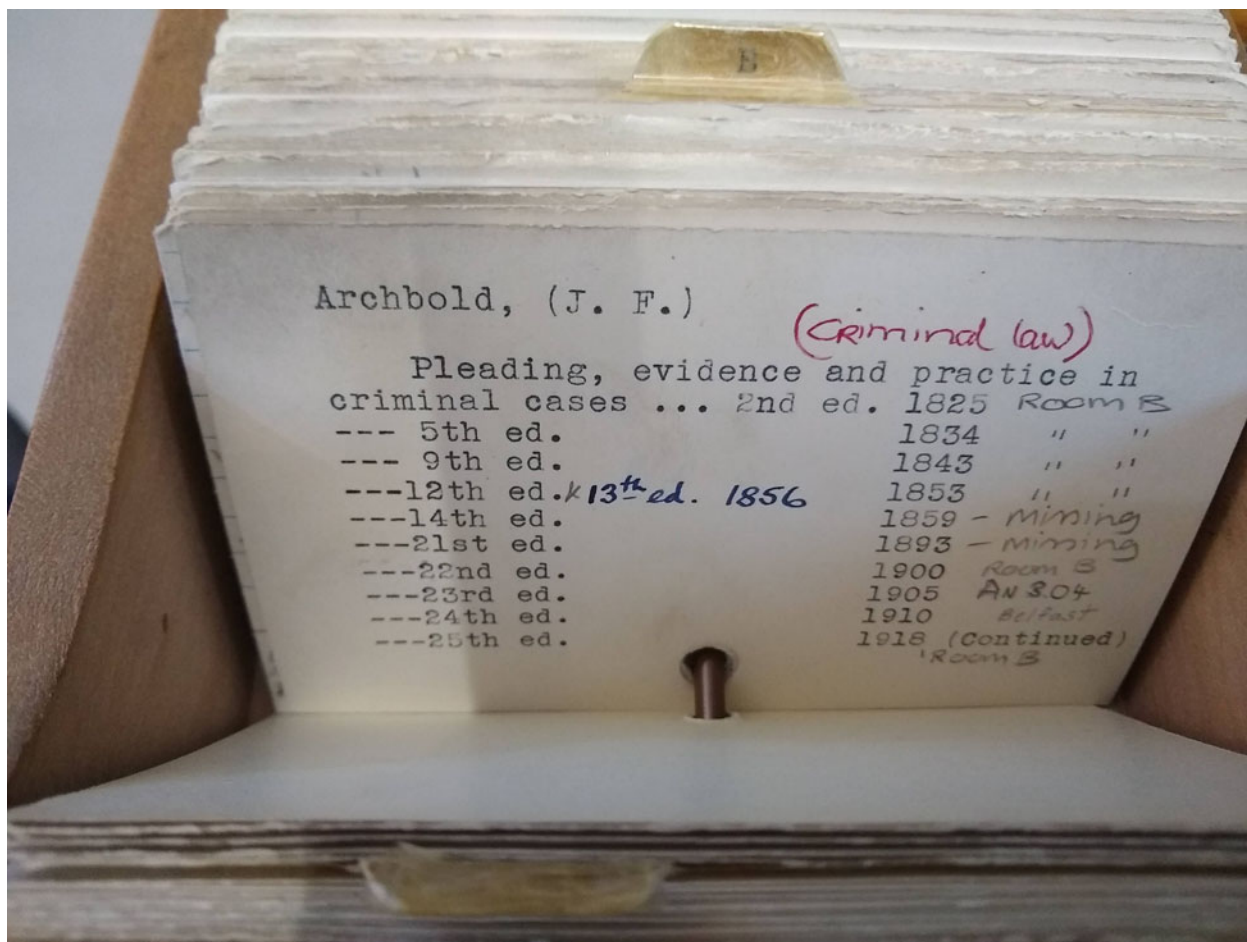 B
Archbold, (J. F.)
(Criminal law)
Pleading, evidence and practice in
criminal cases ... 2nd ed. 1825 Room B
--- 5th ed. 1834 " "
--- 9th ed. 1843 " "
---12th ed. & 13th ed. 1856 1853 " "
---14th ed. 1859 - Missing
---21st ed. 1893 - Missing
---22nd ed. 1900 Room B
---23rd ed. 1905 AN 8.04
---24th ed. 1910 Belfast
---25th ed. 1918 (Continued)
Room B